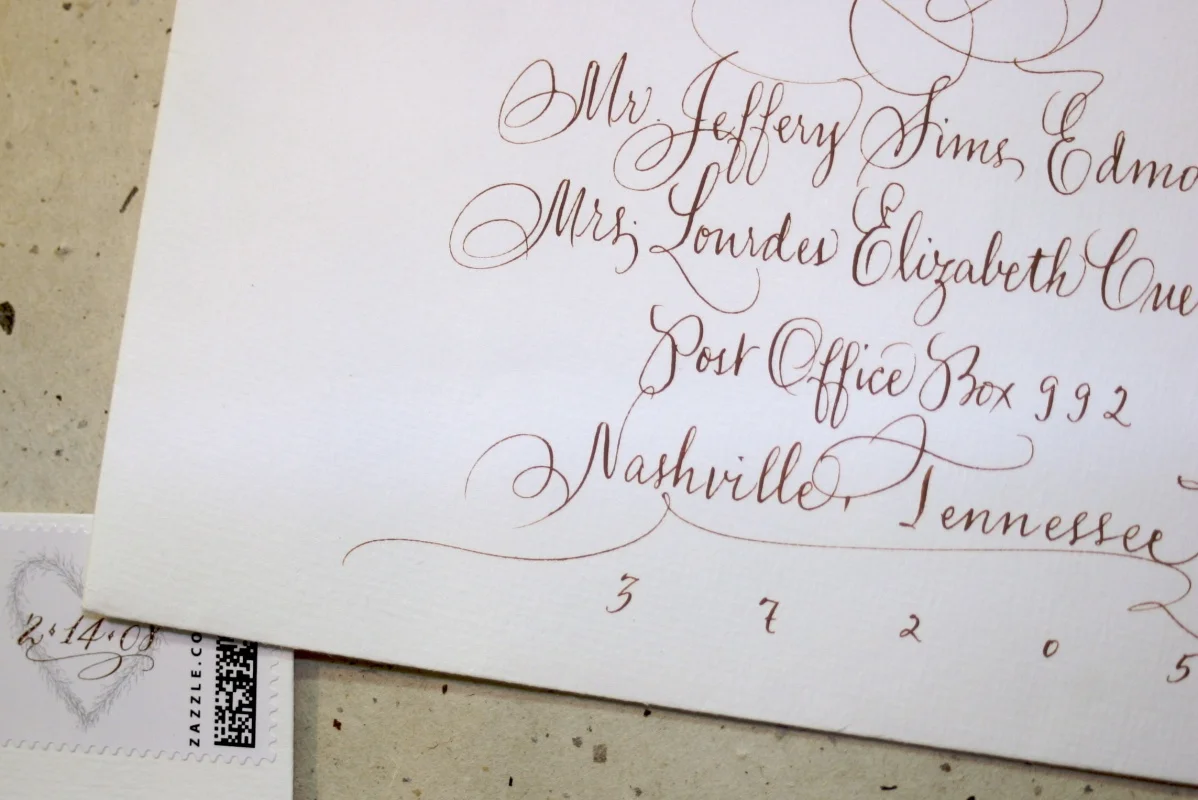 Mr. Jeffery Sims Edmo
Mrs. Lourdes Elizabeth Cue
Post Office Box 992
Nashville, Tennessee
3 7 2 0 5
2·14·08
ZAZZLE.CO